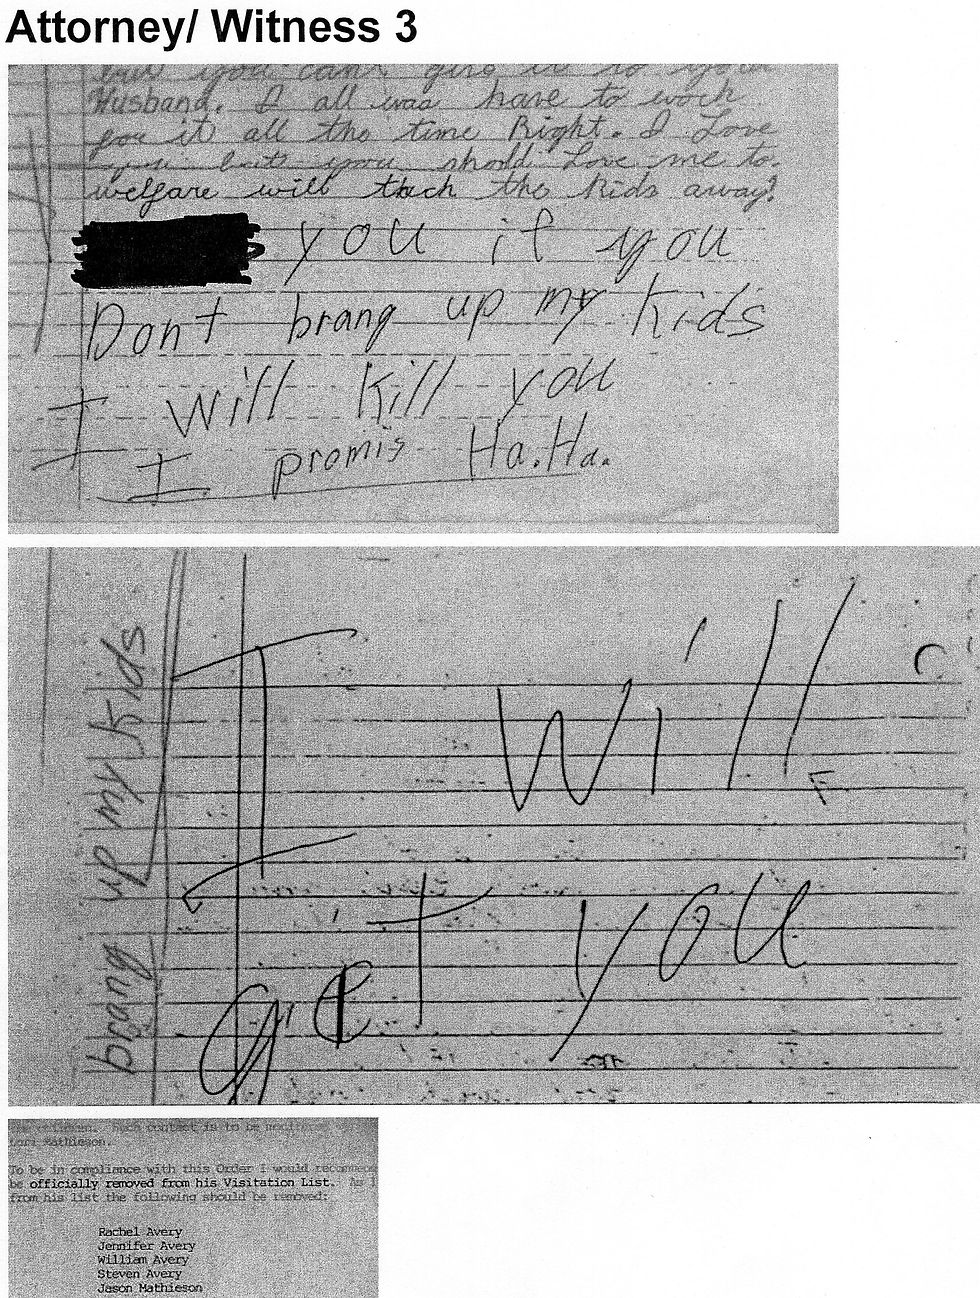 Attorney/ Witness 3
but you can't give it to your
Husband. I all was have to woch
for it all the time Right. I Love
you but you should Love me to.
welfare will tach the Kids away?
you if you
Don't brang up my Kids
I will Kill you
I promis Ha.Ha.
brang up my Kids
I will
get you
Such contact is to be
Lori Mathieson.
To be in compliance with this Order I would recommend
be officially removed from his Visitation List. As I
from his list the following should be removed:
Rachel Avery
Jennifer Avery
William Avery
Steven Avery
Jason Mathieson